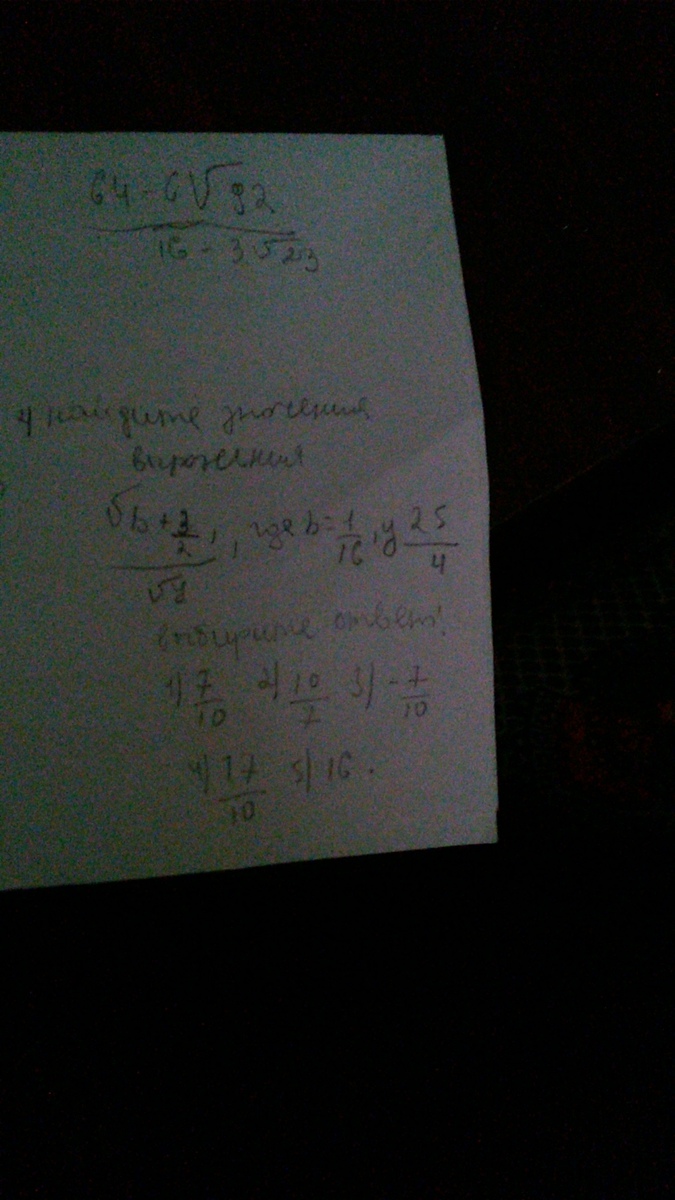 64 - 6√92
16 - 3√23
4 найдите значения
выражения
√b + 3/2, , где b = 1/16, y 25/4
√y
выбирите ответ:
1) 7/10 2) 10/7 3) -7/10
4) 17/10 5) 16.